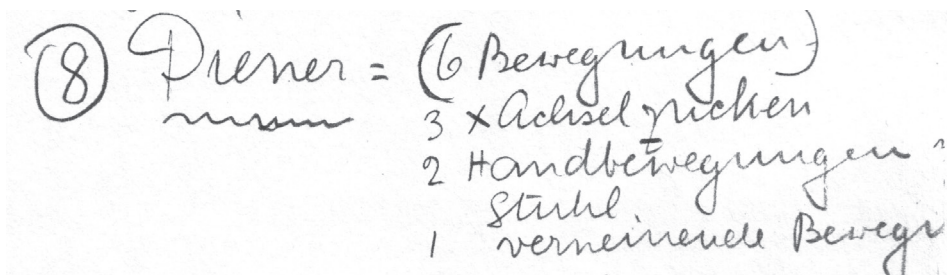 ⑧ Diener = (6 Bewegungen)
3 x Achselzucken
2 Handbewegungen
Stuhl.
1 verneinende Bewegu